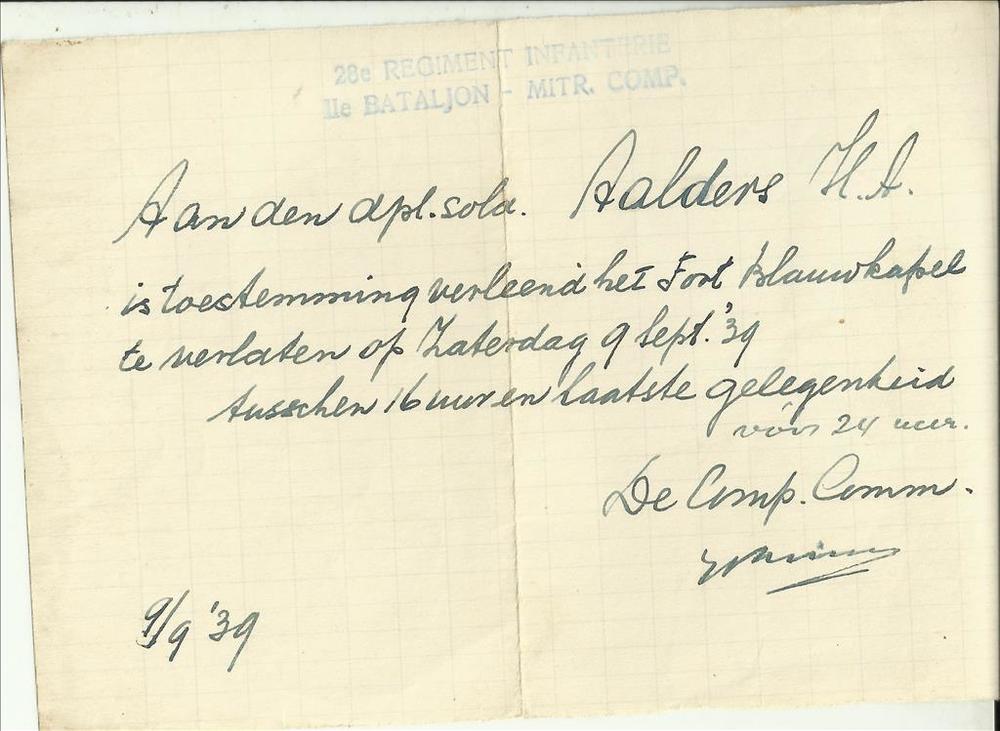 28e REGIMENT INFANTERIE
IIe BATALJON - MITR. COMP.
Aan den dpl. sold. Aalders H.A.
is toestemming verleend het Fort Blauwkapel
te verlaten op Zaterdag 9 Sept. '39
tusschen 16 uur en laatste gelegenheid
vóór 24 uur.
De Comp. Comm.
9/9 '39